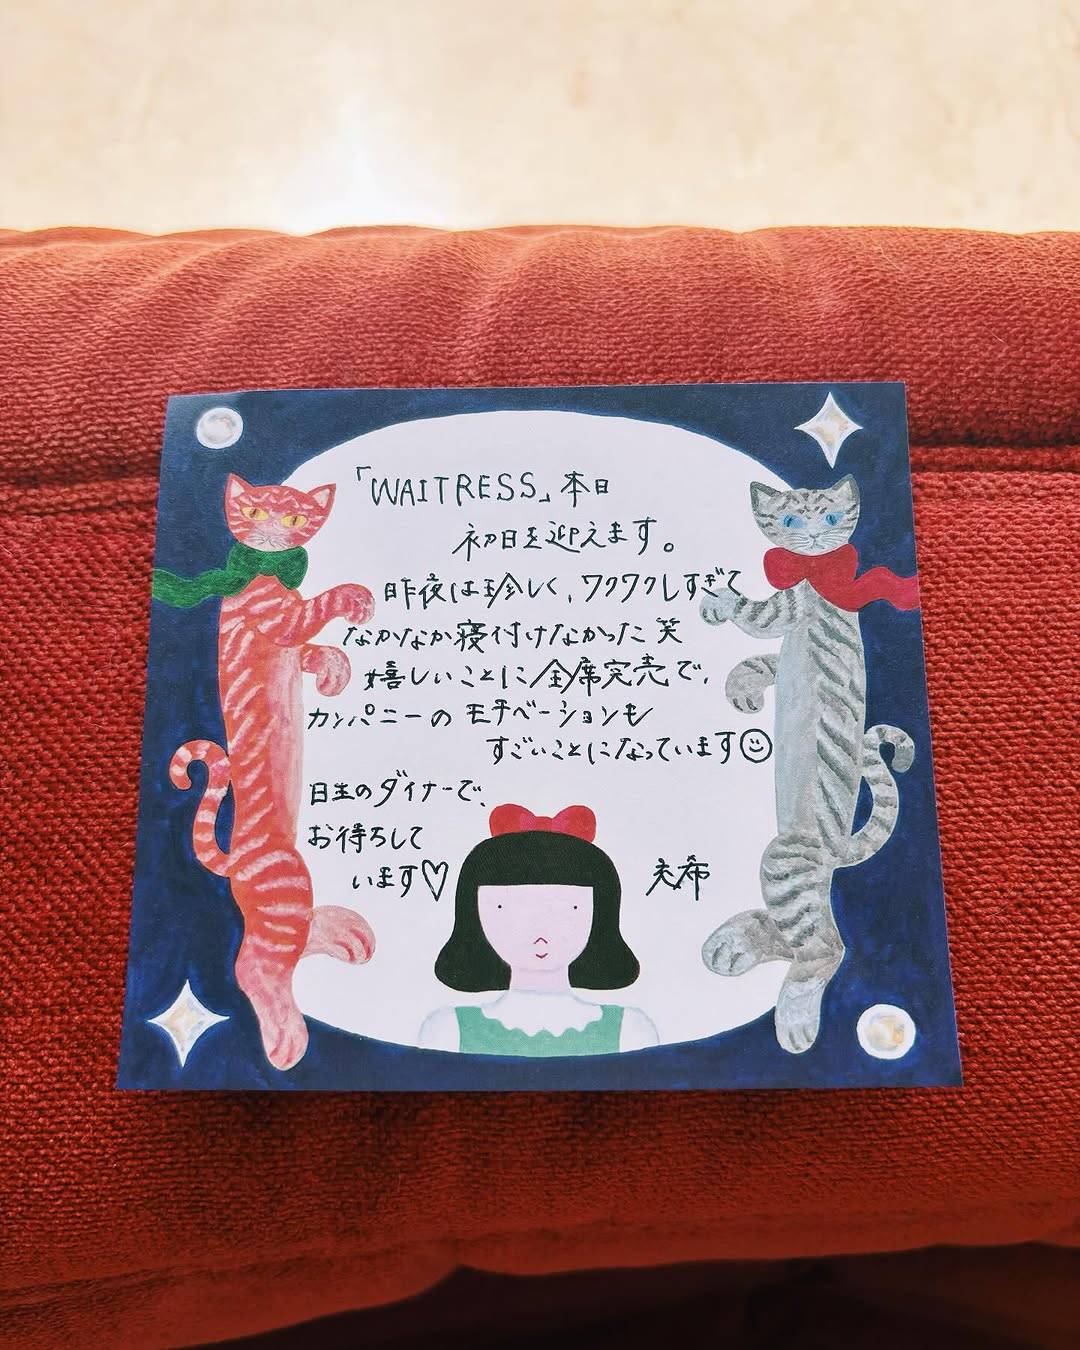 「WAITRESS」本日
初日を迎えます。
昨夜は珍しく、ワクワクしすぎて
なかなか寝付けなかった笑
嬉しいことに全席完売で、
カンパニーのモチベーションも
すごいことになっています☺
日生のダイナーで、
お待ちして
います♡
充希